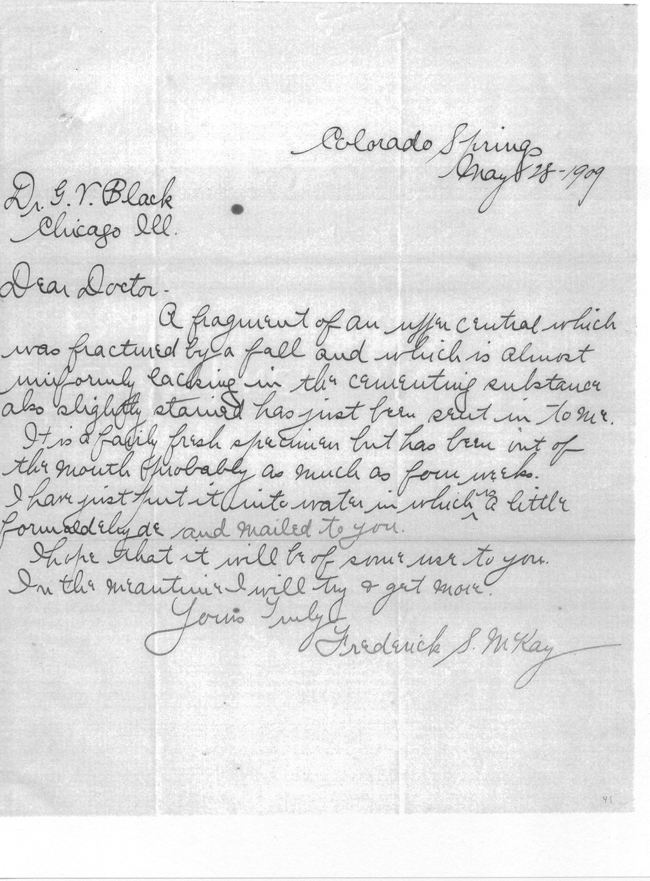 Colorado Springs
May 28-1909
Dr. G. V. Black
Chicago Ill.
Dear Doctor-
A fragment of an upper central which
was fractured by a fall and which is almost
uniformly lacking in the cementing substance
also slightly stained has just been sent in to me.
It is a fairly fresh specimen but has been out of
the mouth probably as much as four weeks.
I have just put it into water in which is a little
formaldehyde and mailed to you.
I hope that it will be of some use to you.
In the meantime I will try & get more.
Yours Truly
Frederick S. McKay
41